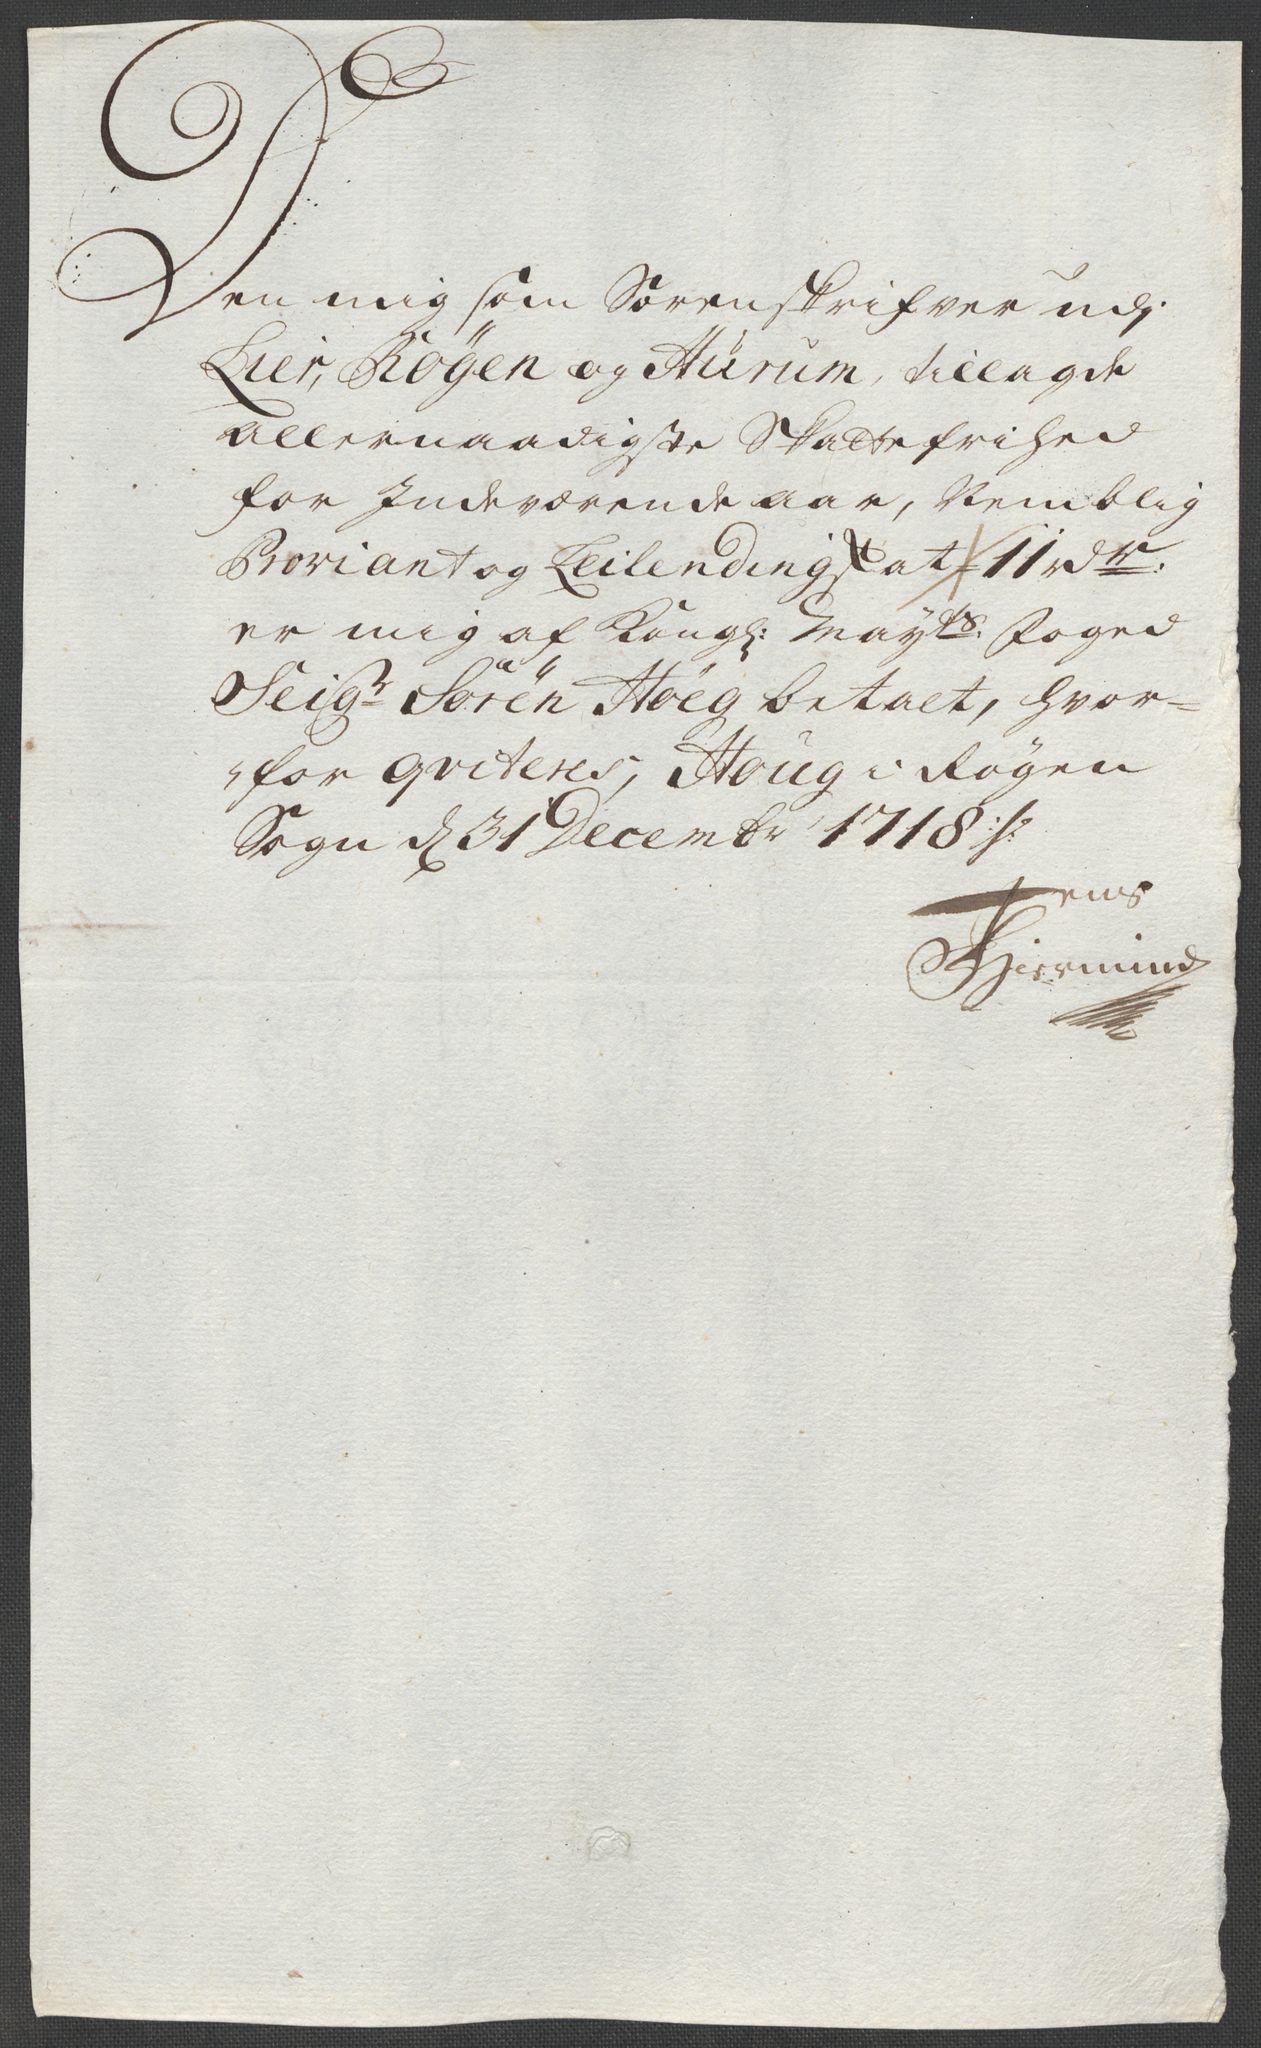 Den mig som Sorenskrifver udj
Lier, Røgen og Hurum, tillagde
allernaadigste Skattefrihed
for Indeværende aar, Nemblig
Proviant og Leilendingskat 11 rdr.
er mig af Kongl: Mayts. Foged
Seigr Søren Høeg betalt, hvor=
for qviteres, Houg i Røgen
Sogn d 31 Decembr 1718
Jens
Hiermind